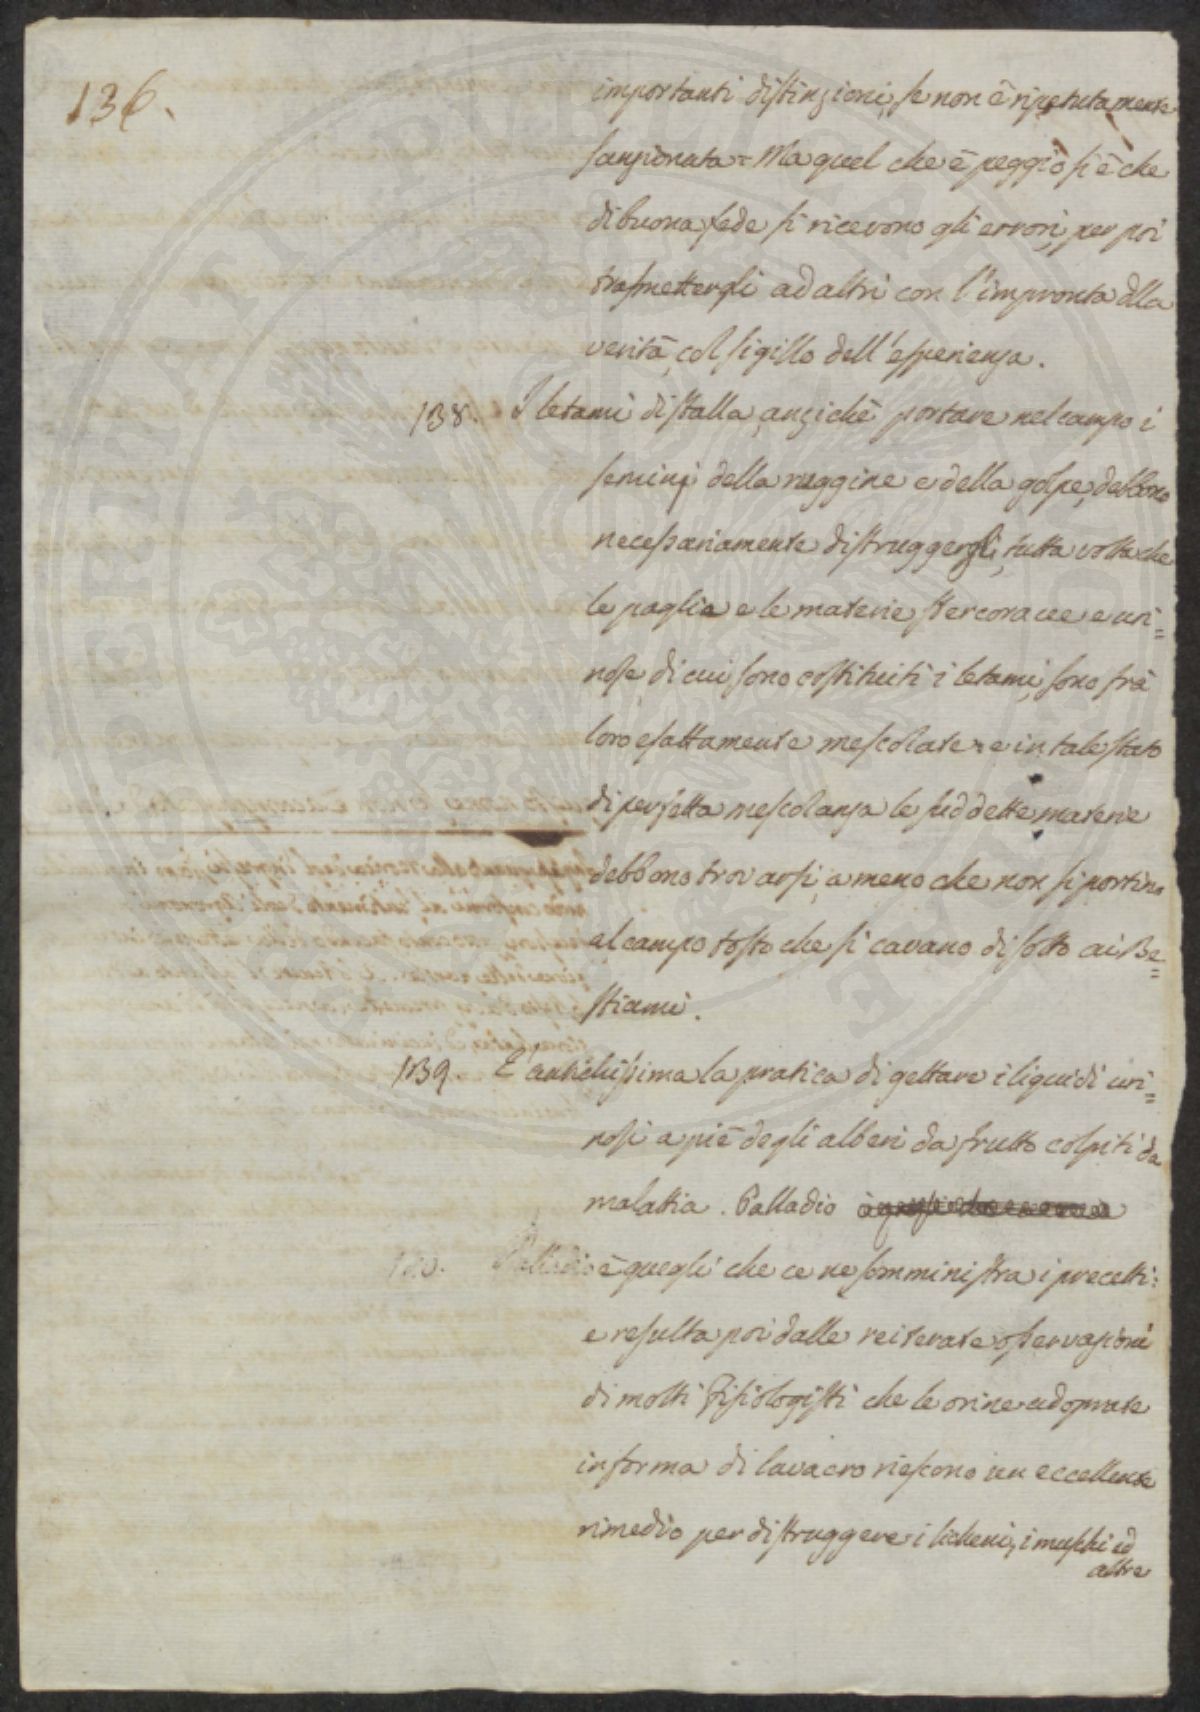 136.
importanti distinzioni, se non è ripetutamente
sanzionata = Ma quel che è peggio si è che
di buona fede si ricevono gli errori, per poi
trasmettergli ad altri con l'impronta dlla
verità, col sigillo dell'esperienza.
138. I letami di stalla, anzichè portare nel campo i
seminj della ruggine e della golpe, debbono
necessariamente distruggergli, tutta volta che
le paglie e le materie stercoracee e uri=
nose, di cui sono costituiti i letami, sono frà
loro esattamente mescolate = e in tale stato
di perfetta mescolanza le suddette materie
debbono trovarsi, a meno che non si portino
al campo tosto che si cavano di sotto ai Be=
stiami.
139. E' antichissima la pratica di gettare i liquidi uri=
nosi a piè degli alberi da frutto colpiti da
malattia. Palladio
140. Palladio è quegli che ce ne somministra i precetti:
e resulta poi dalle reiterate osservazioni
di molti Fisiologisti che le orine adoprate
in forma di lavacro riescono un eccellente
rimedio per distruggere i licheni, i muschi ed
altre